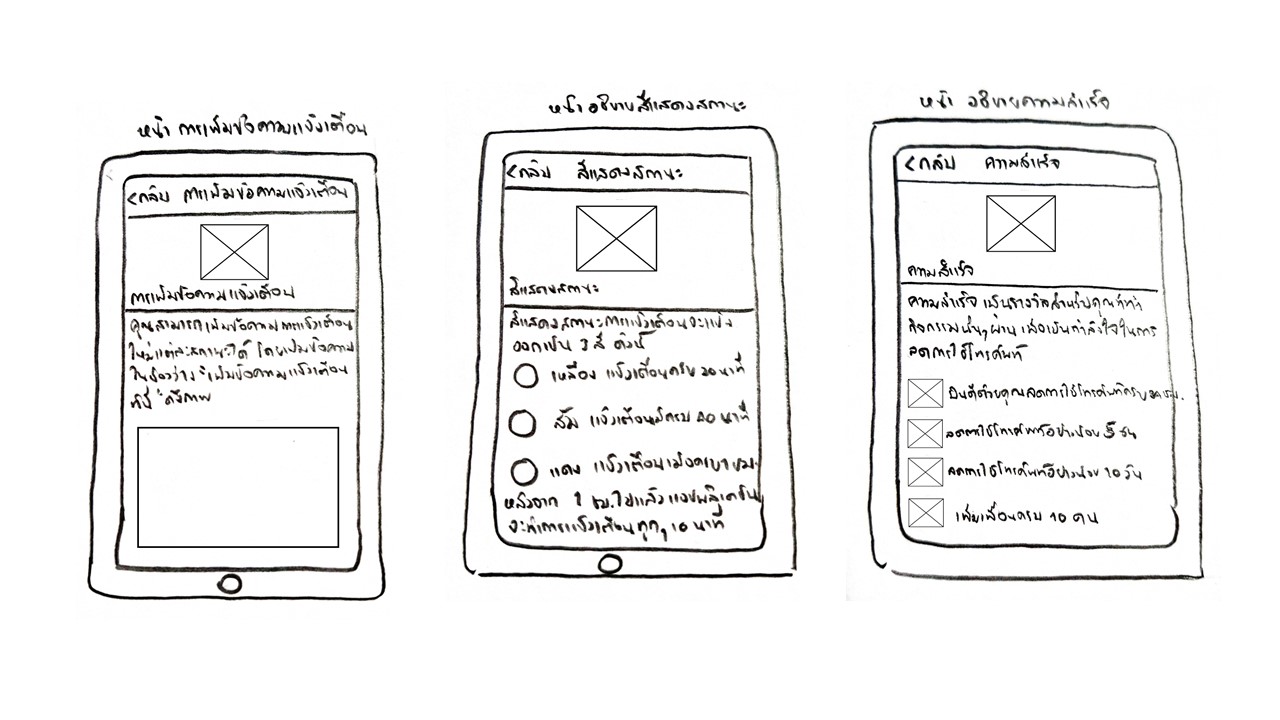 หน้า การเพิ่มข้อความแจ้งเตือน
<กลับ การเพิ่มข้อความแจ้งเตือน
การเพิ่มข้อความแจ้งเตือน
คุณสามารถเพิ่มข้อความการแจ้งเตือน
ใหม่แต่ละสถานะได้ โดยเพิ่มข้อความ
ในช่องว่าง "เพิ่มข้อความแจ้งเตือน
ที่นี่" ดังภาพ
หน้า อธิบายสีแสดงสถานะ
<กลับ สีแสดงสถานะ
สีแสดงสถานะ
สีแสดงสถานะการแจ้งเตือนจะแบ่ง
ออกเป็น 3 สี ดังนี้
เหลือง แจ้งเตือนครบ 20 นาที
ส้ม แจ้งเตือนเมื่อครบ 40 นาที
แดง แจ้งเตือนเมื่อครบ 1 ชม.
หลังจาก 1 ชม. ไปแล้ว แอปพลิเคชัน
จะทำการแจ้งเตือนทุกๆ 10 นาที
หน้า อธิบายความสำเร็จ
<กลับ ความสำเร็จ
ความสำเร็จ
ความสำเร็จ เป็นรางวัลสำหรับคุณที่ทำ
กิจกรรมนั้นๆผ่าน เพื่อเป็นกำลังใจในการ
ลดการใช้โทรศัพท์
ยินดีด้วยคุณลดการใช้โทรศัพท์ครบ ชม.
ลดการใช้โทรศัพท์อย่างน้อย 5 วัน
ลดการใช้โทรศัพท์อย่างน้อย 10 วัน
เพิ่มเพื่อนครบ 10 คน